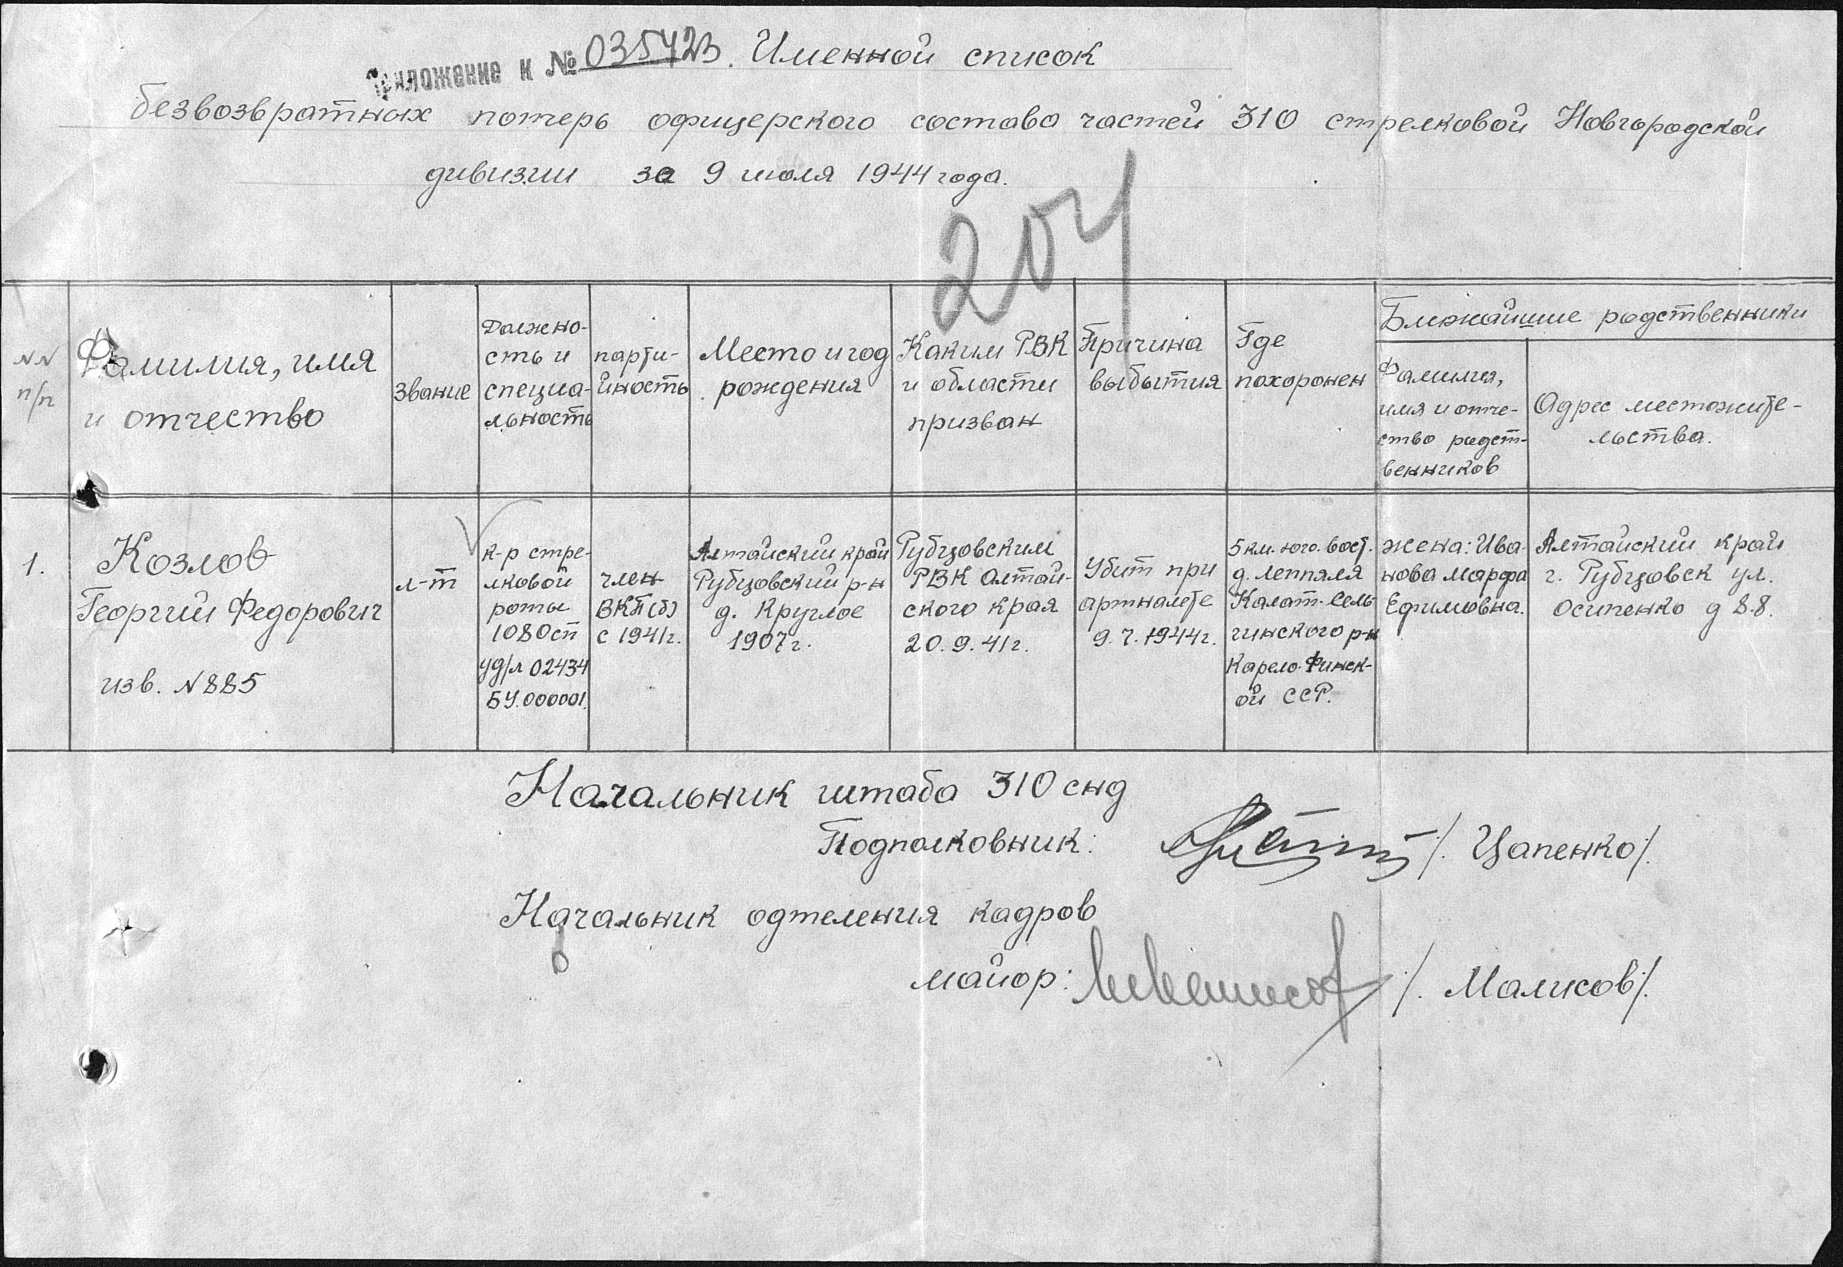 Приложение к № 035423. Именной список
безвозвратных потерь офицерского состава частей 310 стрелковой Новгородской
дивизии за 9 июля 1944 года.
204
NN
п/п
Фамилия, имя
и отчество
Звание
Должно-
сть и
специа-
льность
парти-
йность
Место и год
рождения
Каким РВК
и области
призван
Причина
выбытия
Где
похоронен
Ближайшие родственники
Фамилия,
имя и отче-
ство родст-
венников
Адрес местожите-
льства.
1.
Козлов
Георгий Федорович
изв. N885
л-т
к-р стре-
лковой
роты
1080сп
уд/л 02434
БУ.000001.
член
ВКП(б)
с 1941г.
Алтайский край
Рубцовский р-н
д. Круглое
1907г.
Рубцовским
РВК Алтай-
ского края
20.9.41г.
Убит при
артналете
9.7.1944г.
5 км. юго. вост.
д. Леппяля
Калат. Сель
гинского р-н
Карело-Финск-
ой ССР.
жена: Ива-
нова Марфа
Ефимовна.
Алтайский край
г. Рубцовск ул.
Осипенко д 88.
Начальник штаба 310 снд
Подполковник: /. Цапенко/.
Начальник одтеления кадров
майор: /. Маликов/.